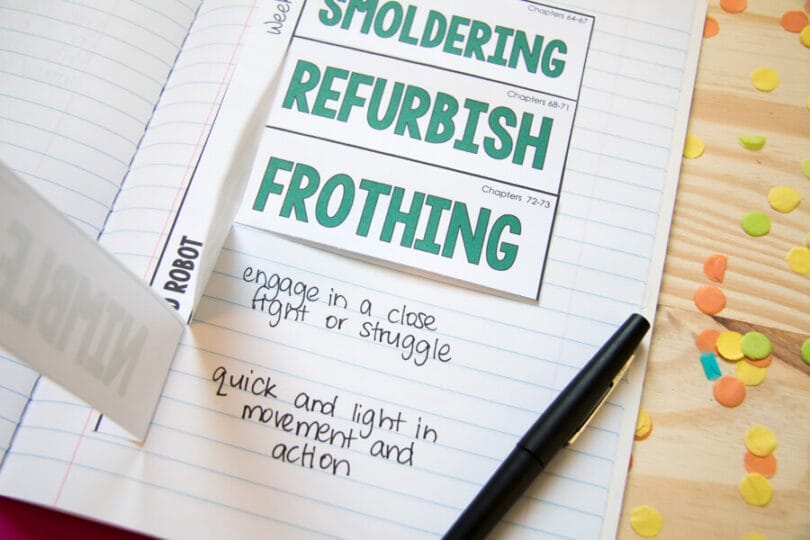 Week
Chapters 64-67
SMOLDERING
Chapters 68-71
REFURBISH
Chapters 72-73
FROTHING
ROBOT
NIMBLE
engage in a close
fight or struggle
quick and light in
movement and
action